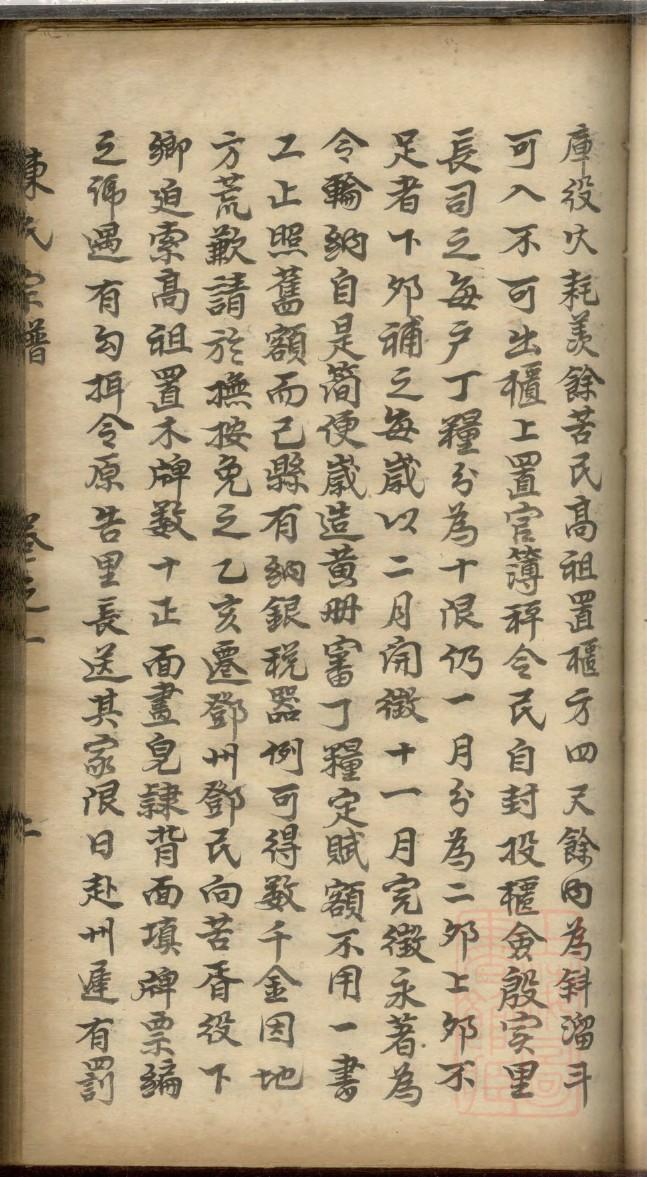 庫役火耗羨餘苦民高祖置櫃方四尺餘內為斜溜斗
可入不可出櫃上置官簿秤令民自封投櫃僉殷实里
長司之每戶丁糧分為十限仍一月分為二卯上卯不
足者下卯補之每歲以二月開徵十一月完徵永著為
令輪納自是简便歲造黄册審丁糧定賦額不用一書
工止照舊額而已縣有納銀税器例可得数千金因地
方荒歉請於撫按免之乙亥遷鄧州鄧民向苦胥役下
鄉迫索高祖置木牌数十正面畫皂隷背面填牌票編
之號遇有勾摂令原告里長送其家限日赴州遲有罰
陳氏宗譜 卷之一